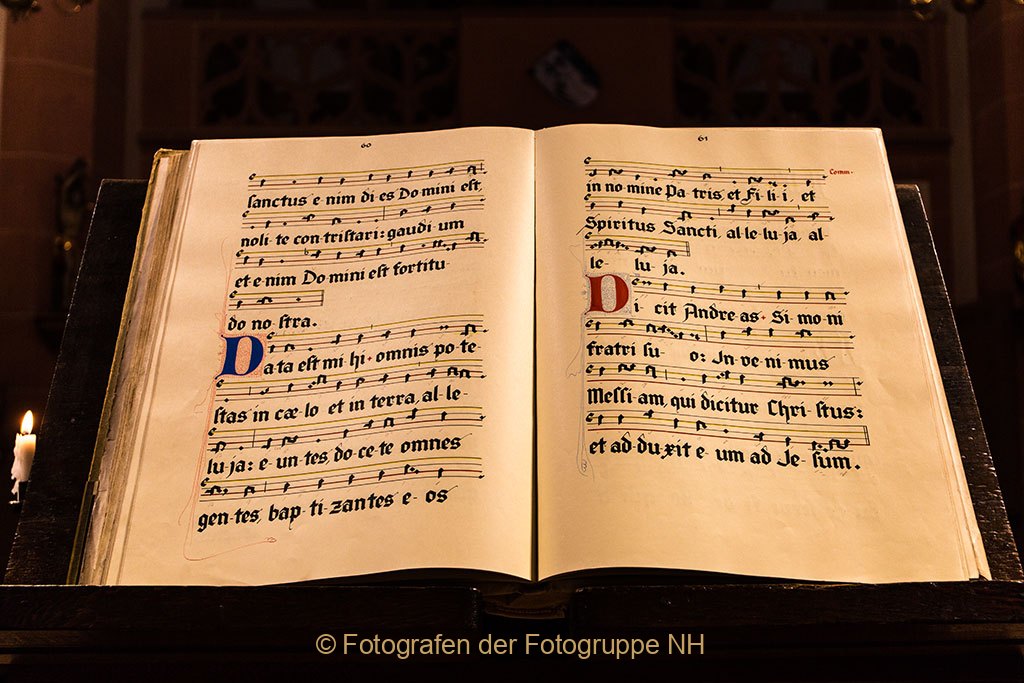 60
sanctus e-nim di-es Domini est,
noli-te con-tristari: gaudi-um
et e-nim Do-mini est fortitu-
do no-stra.
Da-ta est mi-hi omnis po-te-
stas in cæ-lo et in terra, al-le-
lu-ja: e-un-tes, do-ce-te omnes
gen-tes, bap-ti-zantes e-os
61
Comm.
in no-mine Pa-tris, et Fi-li-i, et
Spiritus Sancti, al-le-lu-ja, al-
le-lu-ja.
Di-cit Andre-as Si-mo-ni
fratri su-o: In-ve-ni-mus
Messi-am, qui dicitur Chri-stus:
et ad-du-xit e-um ad Je-sum.
© Fotografen der Fotogruppe NH